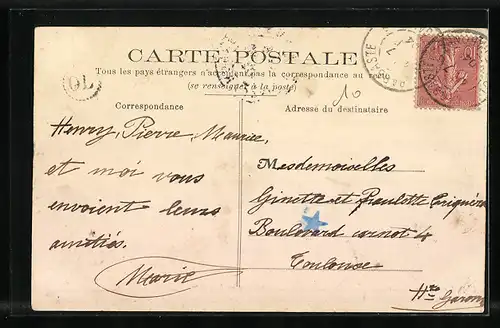 CARTE POSTALE
Tous les pays étrangers n'acceptent pas la correspondance au recto
(se renseigner à la poste)
TO
10
Correspondance
Adresse du destinataire
Henry, Pierre, Maurice,
et moi vous
envoient leurs
amitiés.
Marie
Mesdemoiselles
Ginette et Paulotte
Boulevard carnot 4
Toulouse
Hte Garonne